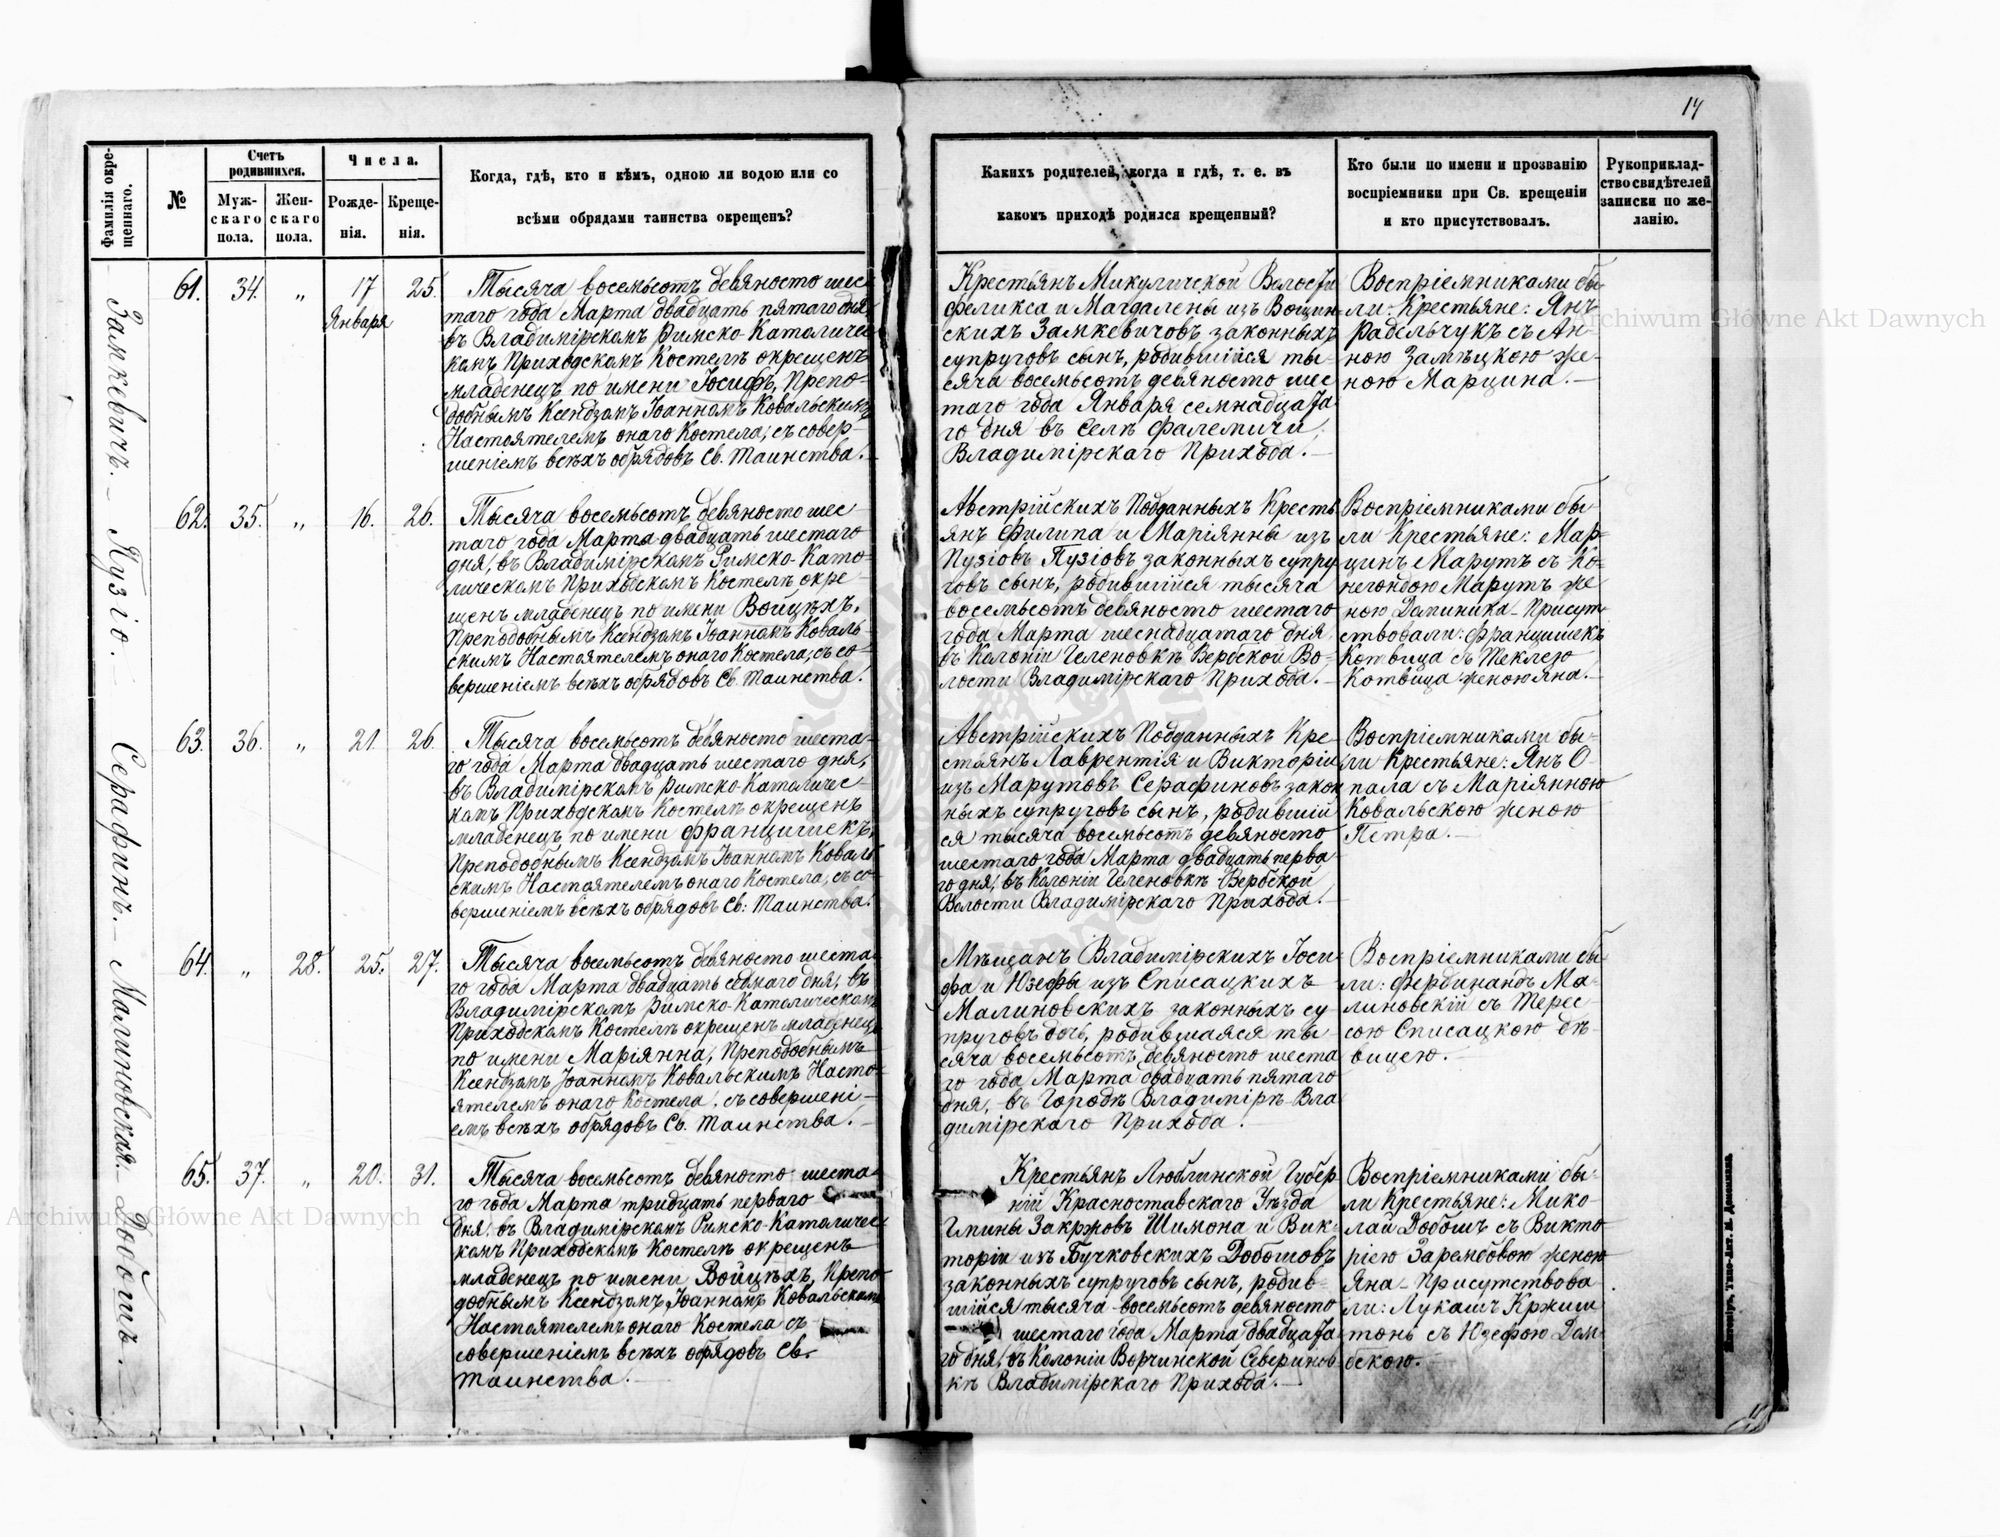 14
Фамилія окре-
щеннаго.
№
Счетъ
родившихся.
Муж-
скаго
пола.
Жен-
скаго
пола.
Числа.
Рожде-
нія.
Креще-
нія.
Когда, гдѣ, кто и кѣмъ, одною ли водою или со
всѣми обрядами таинства окрещенъ?
Каких родителей, когда и гдѣ, т. е. въ
какомъ приходѣ родился крещенный?
Кто были по имени и прозванію
воспріемники при Св. крещеніи
и кто присутствовалъ.
Рукоприклад-
ство свидѣтелей
записки по же-
ланію.
Замкевичъ.
61. 34. „ 17 25.
Января
Тысяча восемьсотъ девяносто шес
таго года Марта двадцать пятаго дня
въ Владимірскомъ Римско-Католичес
комъ Приходскомъ Костелѣ окрещенъ
младенецъ по имени Іосифъ, Препо-
добнымъ Ксендзомъ Іоанномъ Ковальскимъ
Настоятелемъ онаго Костела, съ совер-
шеніемъ всѣхъ обрядовъ Св. Таинства.
Крестьянъ Микуличской Волости
Феликса и Магдалены изъ Вощин
скихъ Замкевичовъ законныхъ
супруговъ сынъ, родившійся ты-
сяча восемьсотъ девяносто шес
таго года Января семнадцата
го дня въ Селѣ Фалемичи
Владимірскаго Прихода.
Воспріемниками бы-
ли: Крестьяне: Янъ
Радельчукъ съ Ан-
ною Замѣцкою же-
ною Марцина.
Пузіо.
62. 35. „ 16. 26.
Тысяча восемьсотъ девяносто шес
таго года Марта двадцать шестаго
дня, въ Владимірскомъ Римско-Като-
лическомъ Приходскомъ Костелѣ окре-
щенъ младенецъ по имени Войцѣхъ,
Преподобнымъ Ксендзомъ Іоанномъ Коваль-
скимъ Настоятелемъ онаго Костела, съ со-
вершеніемъ всѣхъ обрядовъ Св. Таинства.
Австрійскихъ Подданныхъ Кресть
янъ Филипа и Маріянны изъ
Пузіовъ Пузіовъ законныхъ супру
говъ сынъ, родившійся тысяча
восемьсотъ девяносто шестаго
года Марта шеснадцатаго дня,
въ Колоніи Геленовкѣ Вербской Во-
лости Владимірскаго Прихода.
Воспріемниками бы-
ли Крестьяне: Мар-
цинъ Марутъ съ Ко-
негондою Марутъ же
ною Доминика - Присут
ствовали: Францишекъ
Котвица съ Теклею
Котвица женою Яна.
Серафинъ.
63. 36. „ 21. 26.
Тысяча восемьсотъ девяносто шеста-
го года Марта двадцать шестаго дня,
въ Владимірскомъ Римско-Католичес-
комъ Приходскомъ Костелѣ окрещенъ
младенецъ по имени Францишекъ,
Преподобнымъ Ксендзомъ Іоанномъ Коваль
скимъ Настоятелемъ онаго Костела, съ со-
вершеніемъ всѣхъ обрядовъ Св: Таинства.
Австрійскихъ Подданныхъ Кре-
стьянъ Лаврентія и Викторіи
изъ Марутовъ Серафиновъ закон
ныхъ супруговъ сынъ, родившій
ся тысяча восемьсотъ девяносто
шестаго года Марта двадцать перва
го дня, въ Колоніи Геленовкѣ Вербской
Волости Владимірскаго Прихода.
Воспріемниками бы-
ли Крестьяне: Янъ О-
пала съ Маріянною
Ковальскою женою
Петра.
Малиновская
64. „ 28. 25. 27.
Тысяча восемьсотъ девяносто шеста-
го года Марта двадцать седмаго дня, въ
Владимірскомъ Римско-Католическомъ
Приходскомъ Костелѣ окрещенъ младенец
по имени Маріянна, Преподобнымъ
Ксендзомъ Іоанномъ Ковальскимъ Насто-
ятелемъ онаго Костела, съ совершені-
емъ всѣхъ обрядовъ Св. Таинства.
Мѣщанъ Владимірскихъ Іоси-
фа и Юзефы изъ Списацкихъ
Малиновскихъ законныхъ су-
пруговъ дочь, родившаяся ты-
сяча восемьсотъ девяносто шеста
го года Марта двадцать пятаго
дня, въ Городѣ Владимірѣ Вла
димірскаго Прихода.
Воспріемниками бы-
ли: Фердинандъ Ма-
линовскій съ Терес-
сою Списацкою дѣ-
вицею.
Добошъ.
65. 37. „ 20. 31.
Тысяча восемьсотъ девяносто шеста-
го года Марта тридцать перваго
дня, въ Владимірскомъ Римско-Католичес
комъ Приходскомъ Костелѣ окрещенъ
младенецъ по имени Войцѣхъ, Препо-
добнымъ Ксендзомъ Іоанномъ Ковальскимъ
Настоятелемъ онаго Костела съ
совершеніемъ всѣхъ обрядовъ Св.
Таинства.
Крестьянъ Люблинской Губер
ніи Красноставскаго Уѣзда
Гмины Закржовъ Шимона и Вик-
торіи изъ Бучковскихъ Добошовъ
законныхъ супруговъ сынъ, родив-
шійся тысяча восемьсотъ девяносто
шестаго года Марта двадцата
го дня, въ Колоніи Ворчинской Северинов
кѣ Владимірскаго Прихода.
Воспріемниками бы-
ли Крестьяне: Мико-
лай Добошъ съ Викто-
ріею Зарембовою женою
Яна - Присутствова
ли: Лукашъ Кржиш
тонь съ Юзефою Дом-
бскою.
Житоміръ, Типо-Лит. М. Дененмана.
Archiwum Główne Akt Dawnych
Archiwum Główne Akt Dawnych